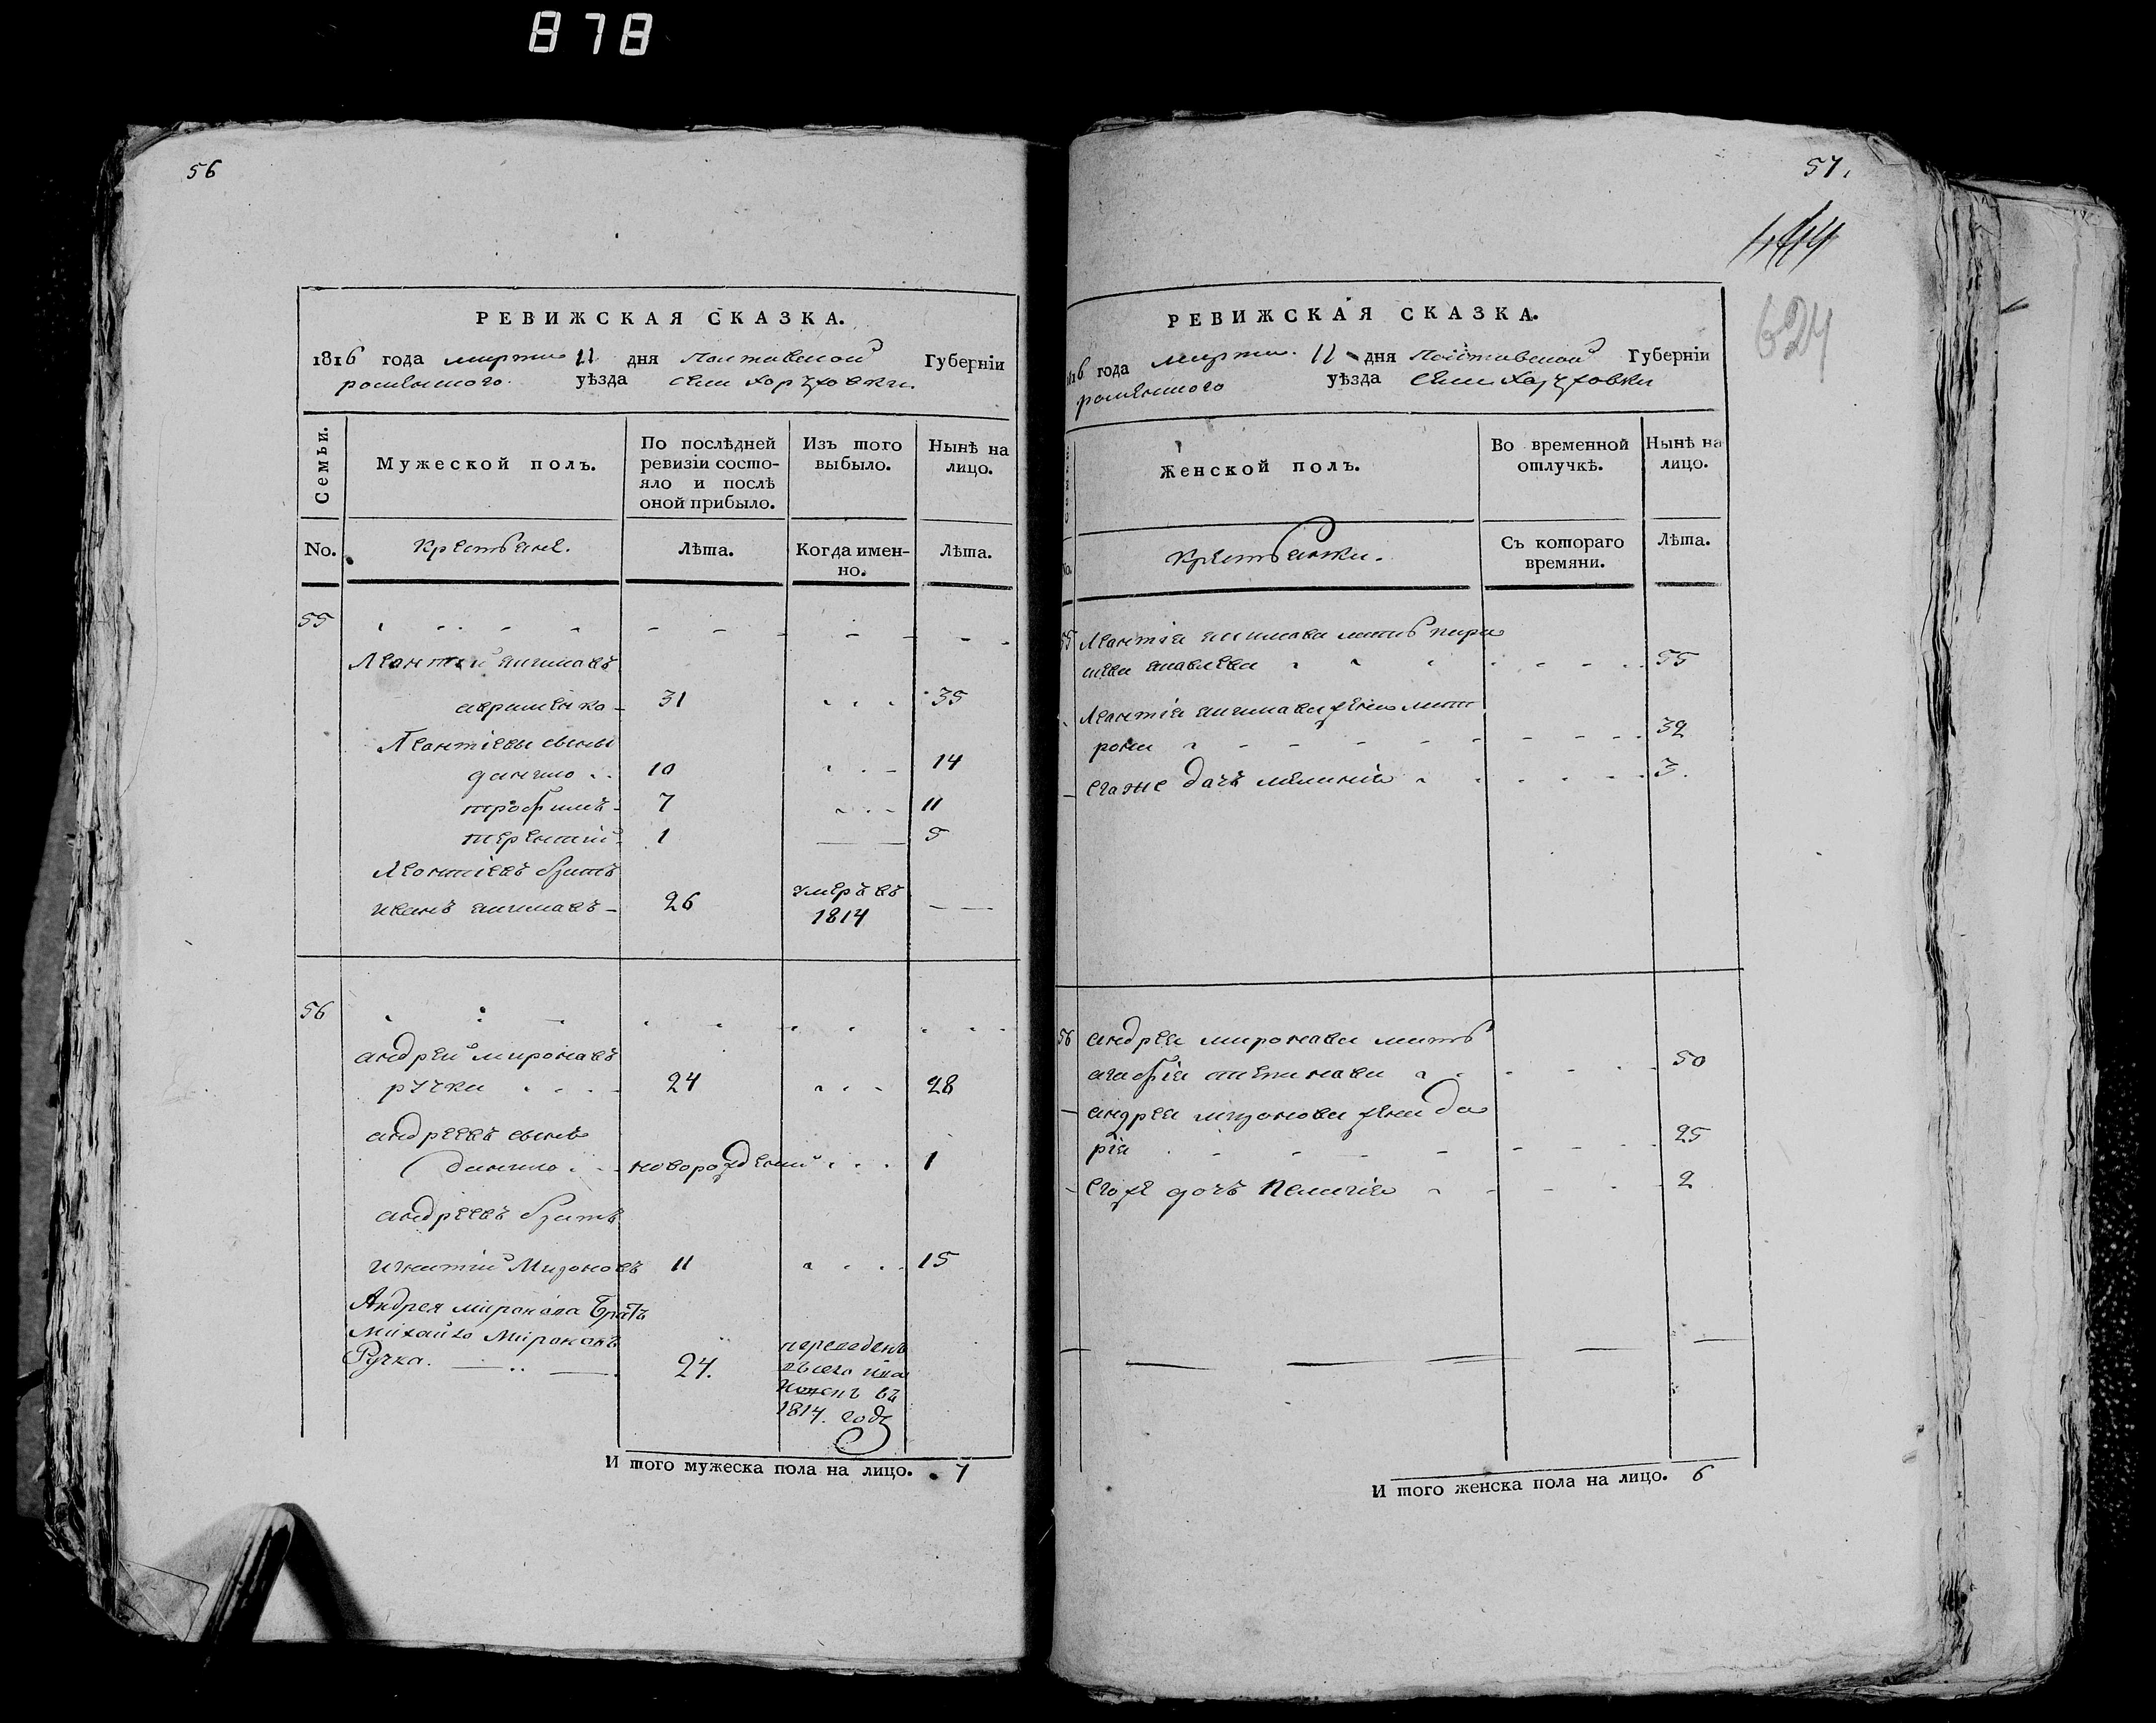 878
56
РЕВИЖСКАЯ СКАЗКА.
1816 года марта 11 дня Полтавской Губерніи
роменского уѣзда села хоружовки.
Семьи.
Мужеской полъ.
По послѣдней ревизіи состо-
яло и послѣ
оной прибыло.
Изъ того
выбыло.
Нынѣ на
лицо.
No.
Крестьяне.
Лѣта.
Когда имен-
но.
Лѣта.
55
Леонтий
31 35
Леонтіевы сыны
данило 10 14
трофимъ 7 11
терентий 1 5
Леонтіевъ братъ
иванъ 26 умеръ въ
1814
56
андрей миронавъ
ручка 24 28
андреевъ сынъ
данило новорожденый 1
андреевъ братъ
игнатий Мироновъ 11 15
Андрея миронова братъ
Михайло Мироновъ
Ручка. 24.
переведенъ
1814. годе
И того мужеска пола на лицо. 7
57.
144
624
РЕВИЖСКАЯ СКАЗКА.
1816 года марта 11 дня Полтавской Губерніи
роменского уѣзда села хоружовки
Женской полъ.
Во временной
отлучкѣ.
Нынѣ на
лицо.
No.
Крестьянки.
Съ котораго
времяни.
Лѣта.
55 Леонтія мать
55
Леонтія жена мат
рона 32
егоже дочь меланія 3.
56 андрея миронава мать
агафія 50
андрея миронова жена да
рія 25
егоже дочъ Пелагія 2
И того женска пола на лицо. 6